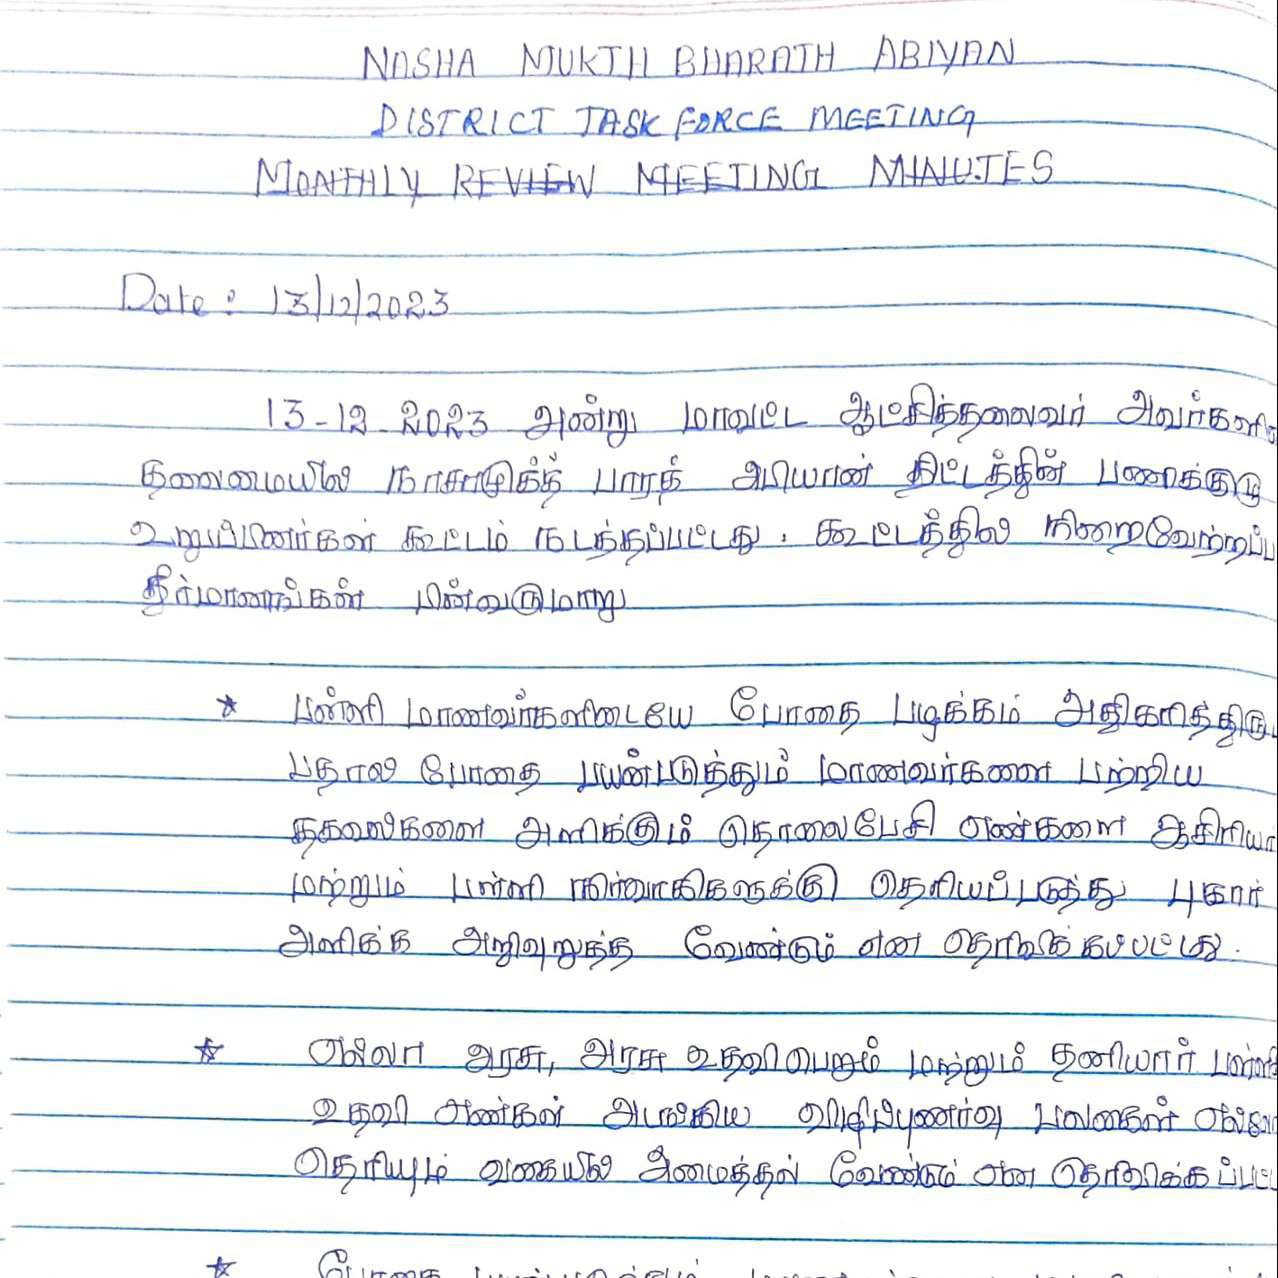 NASHA MUKTH BHARATH ABIYAN
DISTRICT TASK FORCE MEETING
MONTHLY REVIEW MEETING MINUTES
Date : 13/12/2023
13-12-2023 அன்று மாவட்ட ஆட்சித்தலைவர் அவர்களி
தலைமையில் நாசாமுக்த் பாரத் அபியான் திட்டத்தின் பணிக்குழு
உறுப்பினர்கள் கூட்டம் நடத்தப்பட்டது. கூட்டத்தில் நிறைவேற்றப்ப
தீர்மானங்கள் பின்வருமாறு
* பள்ளி மாணவர்களிடையே போதை பழக்கம் அதிகரித்திரு
பதால் போதை பயன்படுத்தும் மாணவர்களை பற்றிய
தகவல்களை அளிக்கும் தொலைபேசி எண்களை ஆசிரிய
மற்றும் பள்ளி நிர்வாகிகளுக்கு தெரியப்படுத்து புகார்
அளிக்க அறிவுறுத்த வேண்டும் என தெரிவிக்கப்பட்டது.
* எல்லா அரசு, அரசு உதவிபெறும் மற்றும் தனியார் பள்ளி
உதவி எண்கள் அடங்கிய விழிப்புணர்வு பலகைகள் எல்லோ
தெரியும் வகையில் அமைத்தல் வேண்டும் என தெரிவிக்கப்பட்ட
* போதை